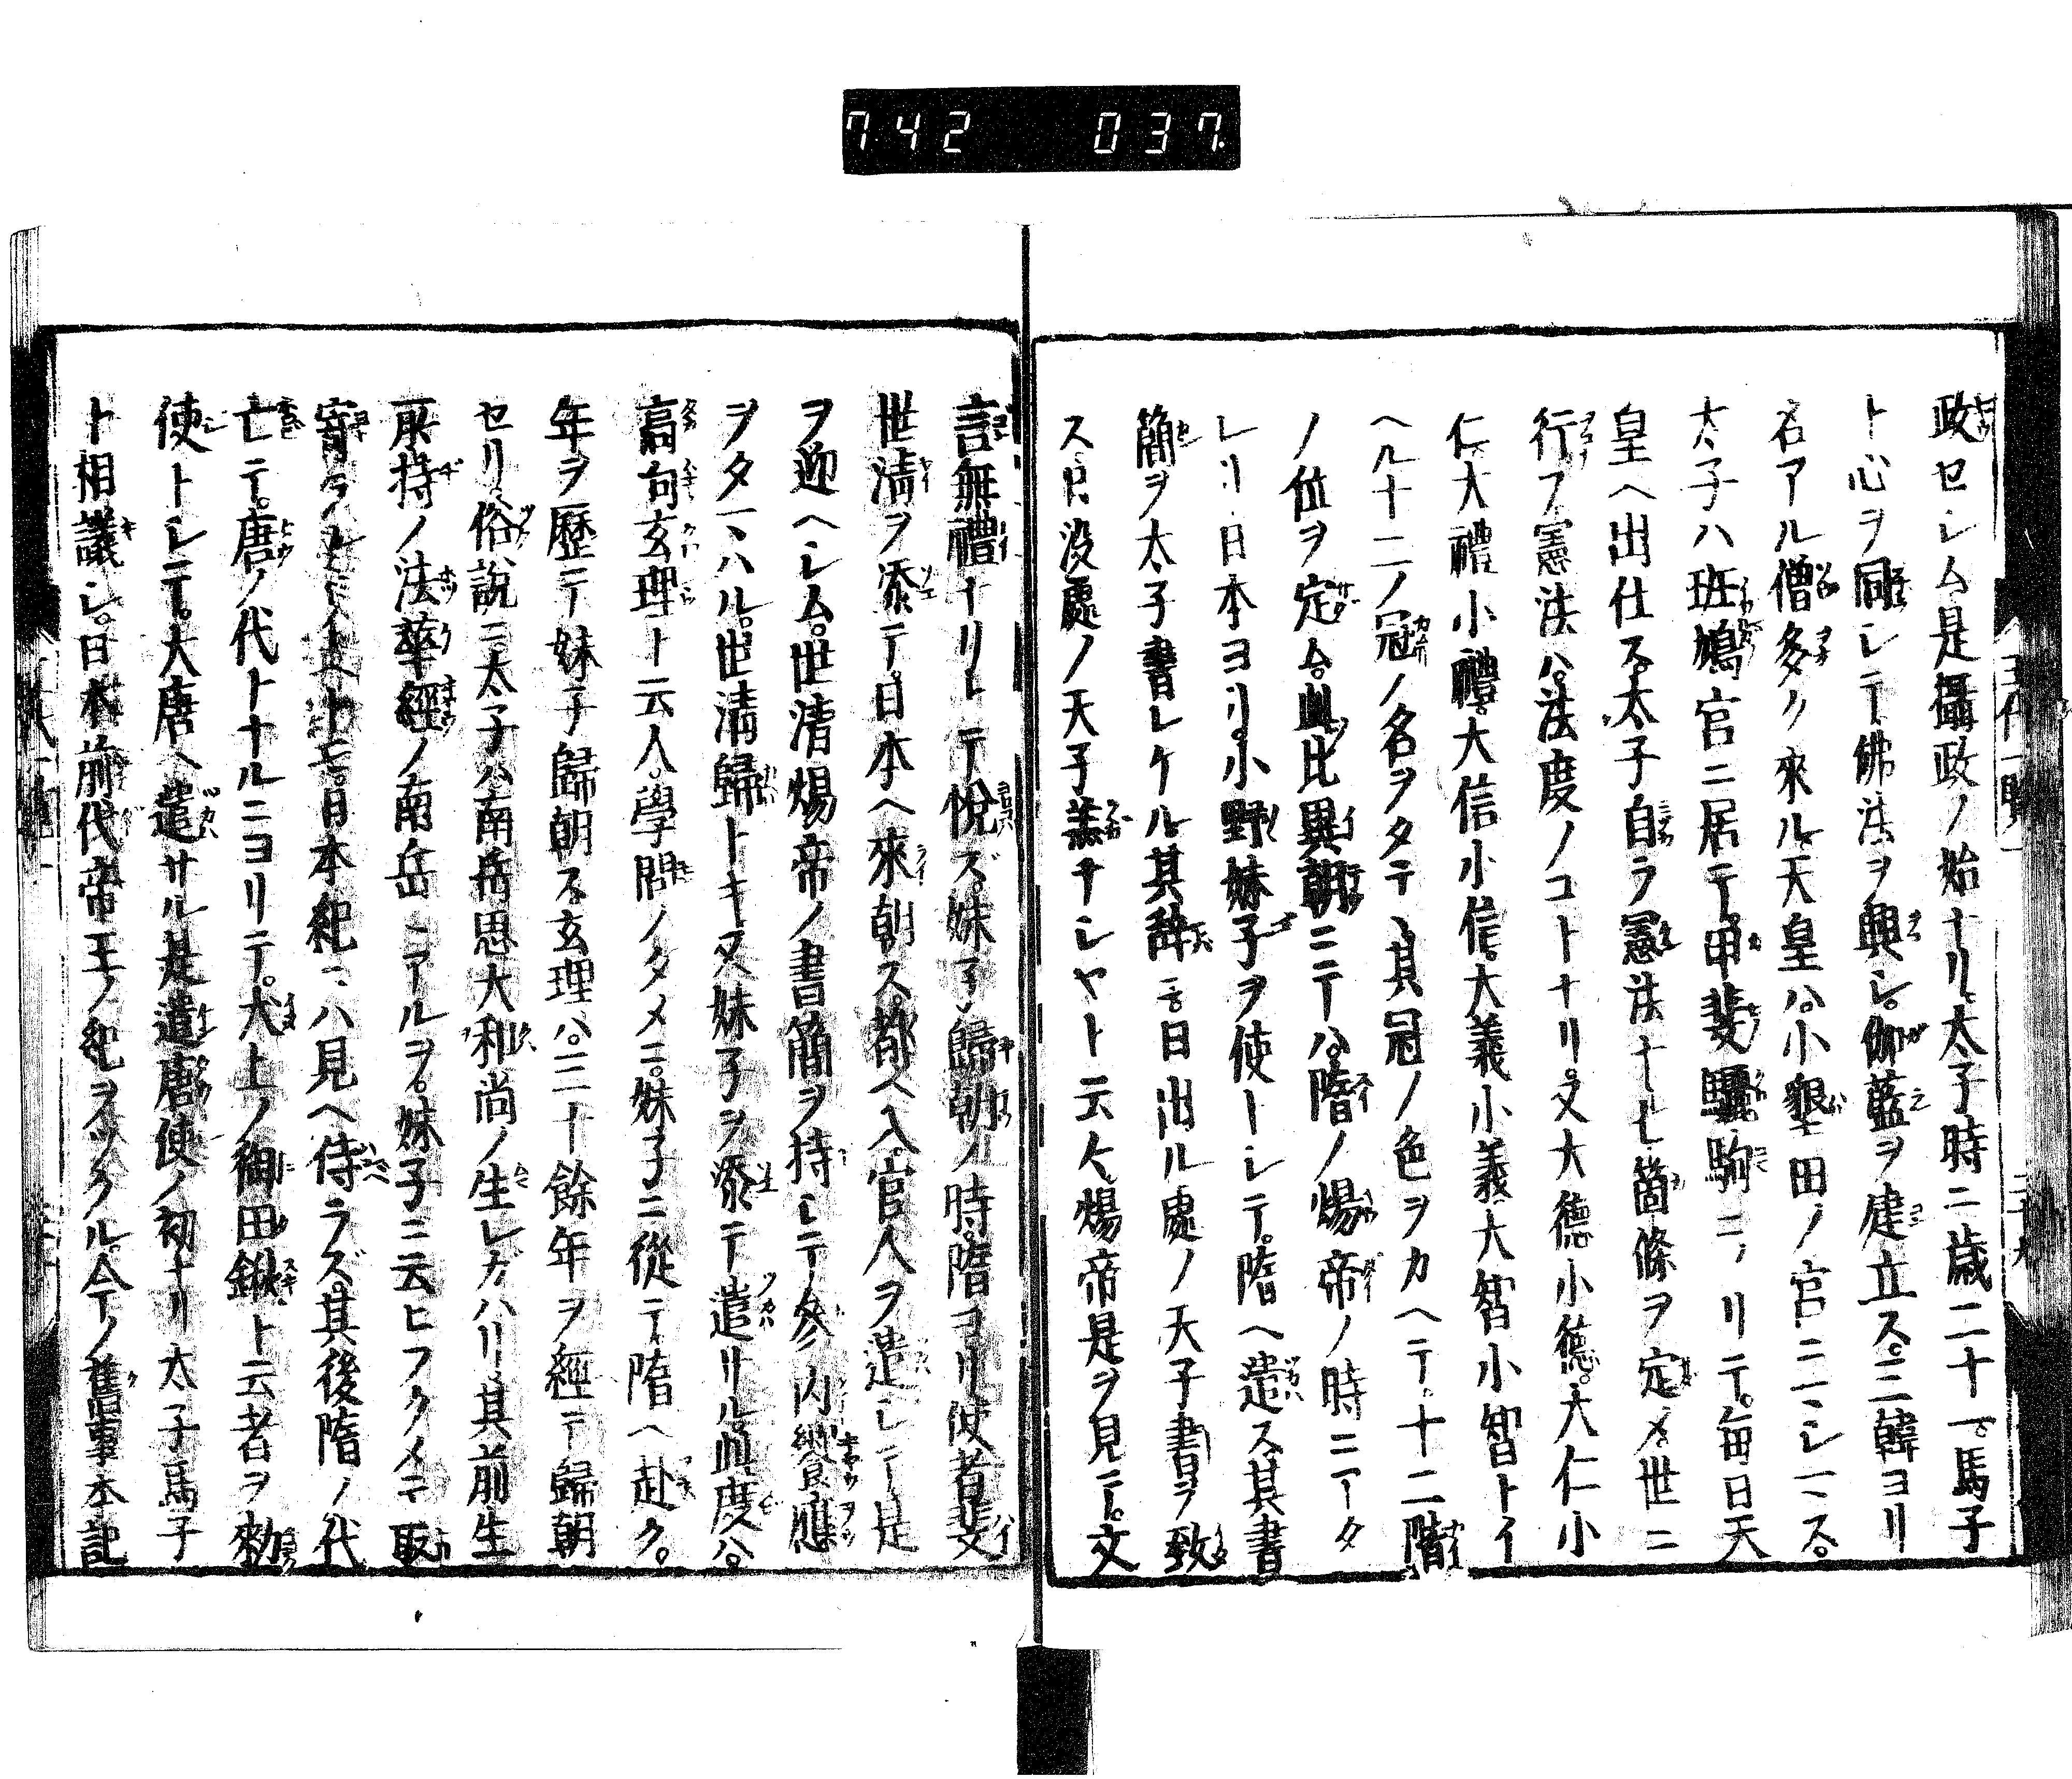 742 037
政セシム是攝政ノ始ナリ太子時ニ歳二十一馬子
ト心ヲ同シテ佛法ヲ興シ伽藍ヲ建立ス三韓ヨリ
名アル僧多ク來ル天皇ハ小墾田ノ宮ニマシマス
太子ハ班鳩宮ニ居テ甲斐驪駒ニノリテ毎日天
皇ヘ出仕ス太子自ラ憲法十七箇條ヲ定メ世ニ
行フ憲法ハ法度ノコトナリ又大德小德大仁小
仁大禮小禮大信小信大義小義大智小智トイ
ヘル十二ノ冠ノ名ヲタテ其冠ノ色ヲカヘテ十二階
ノ位ヲ定ム此比異朝ニテハ隋ノ煬帝ノ時ニアタ
レリ日本ヨリ小野妹子ヲ使トシテ隋ヘ遣ス其書
簡ヲ太子書レケル其辞ニ日出ル處ノ天子書ヲ致
ス日没處ノ天子恙ナシヤト云々煬帝是ヲ見テ文
言無禮ナリトテ悅ズ妹子歸朝ノ時隋ヨリ使者斐
世淸ヲ添テ日本ヘ來朝ス都ヘ入官人ヲ遣シテ是
ヲ迎ヘシム世淸煬帝ノ書簡ヲ持シテ參內饗應
ヲタマハル世淸歸トキ又妹子ヲ添テ遣サル此度ハ
高向玄理ト云人學問ノタメニ妹子ニ從テ隋ヘ赴ク
年ヲ歷テ妹子歸朝ス玄理ハ三十餘年ヲ經テ歸朝
セリ俗說ニ太子ハ南岳思大和尚ノ生レガハリ其前生
所持ノ法華經ノ南岳ニアルヲ妹子ニ云ヒフクメテ取
寄ラルト云日本紀ニハ見ヘ侍ラズ其後隋ノ代
亡テ唐ノ代トナルニヨリテ犬上ノ御田鍬ト云者ヲ勅
使トシテ大唐ヘ遣サル是遣唐使ノ初ナリ太子馬子
ト相議シ日本前代帝王ノ紀ヲツクル今ノ舊事本記